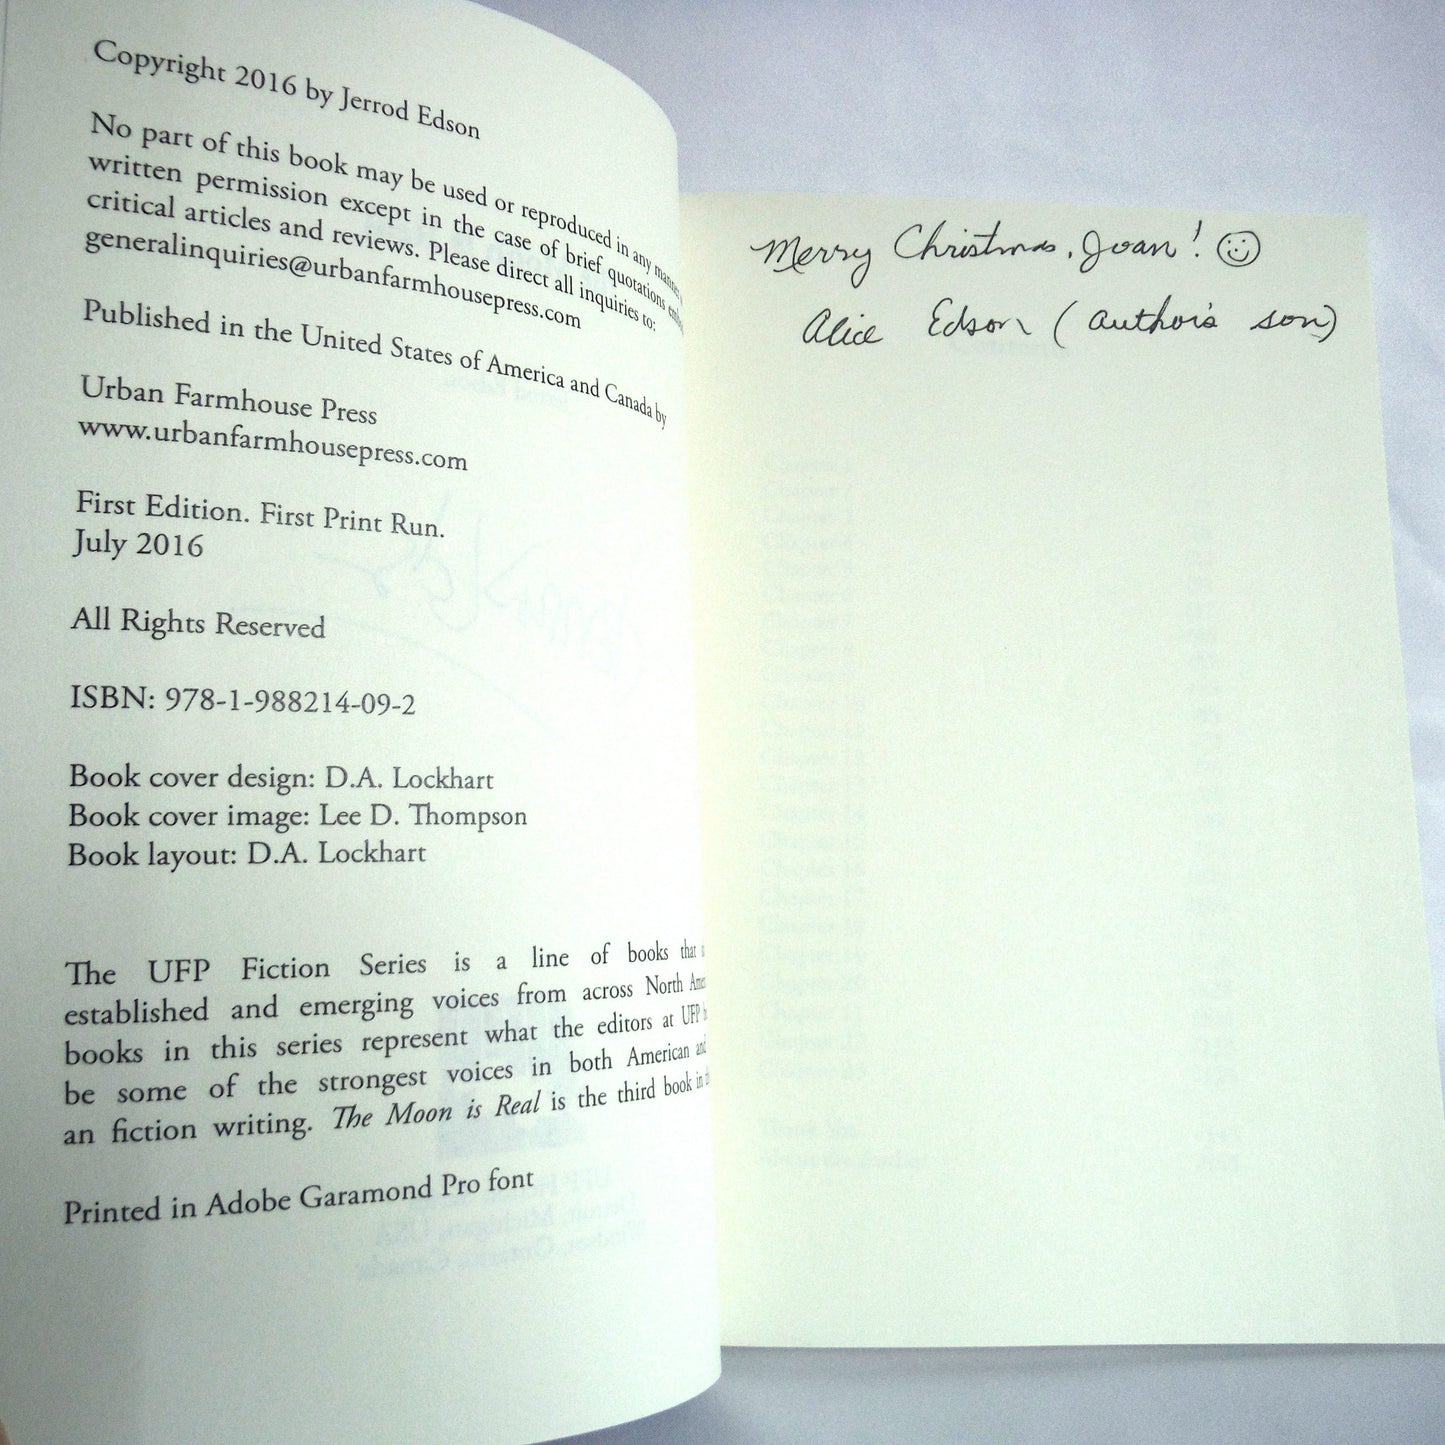 Copyright 2016 by Jerrod Edson
No part of this book may be used or reproduced in any manner
written permission except in the case of brief quotations
critical articles and reviews. Please direct all inquiries to:
generalinquiries@urbanfarmhousepress.com
Published in the United States of America and Canada by
Urban Farmhouse Press
www.urbanfarmhousepress.com
First Edition. First Print Run.
July 2016
All Rights Reserved
ISBN: 978-1-988214-09-2
Book cover design: D.A. Lockhart
Book cover image: Lee D. Thompson
Book layout: D.A. Lockhart
The UFP Fiction Series is a line of books that
established and emerging voices from across North
books in this series represent what the editors at UFP
be some of the strongest voices in both American and
an fiction writing. The Moon is Real is the third book in
Printed in Adobe Garamond Pro font
Merry Christmas, Joan!
Alice Edson (author's son)